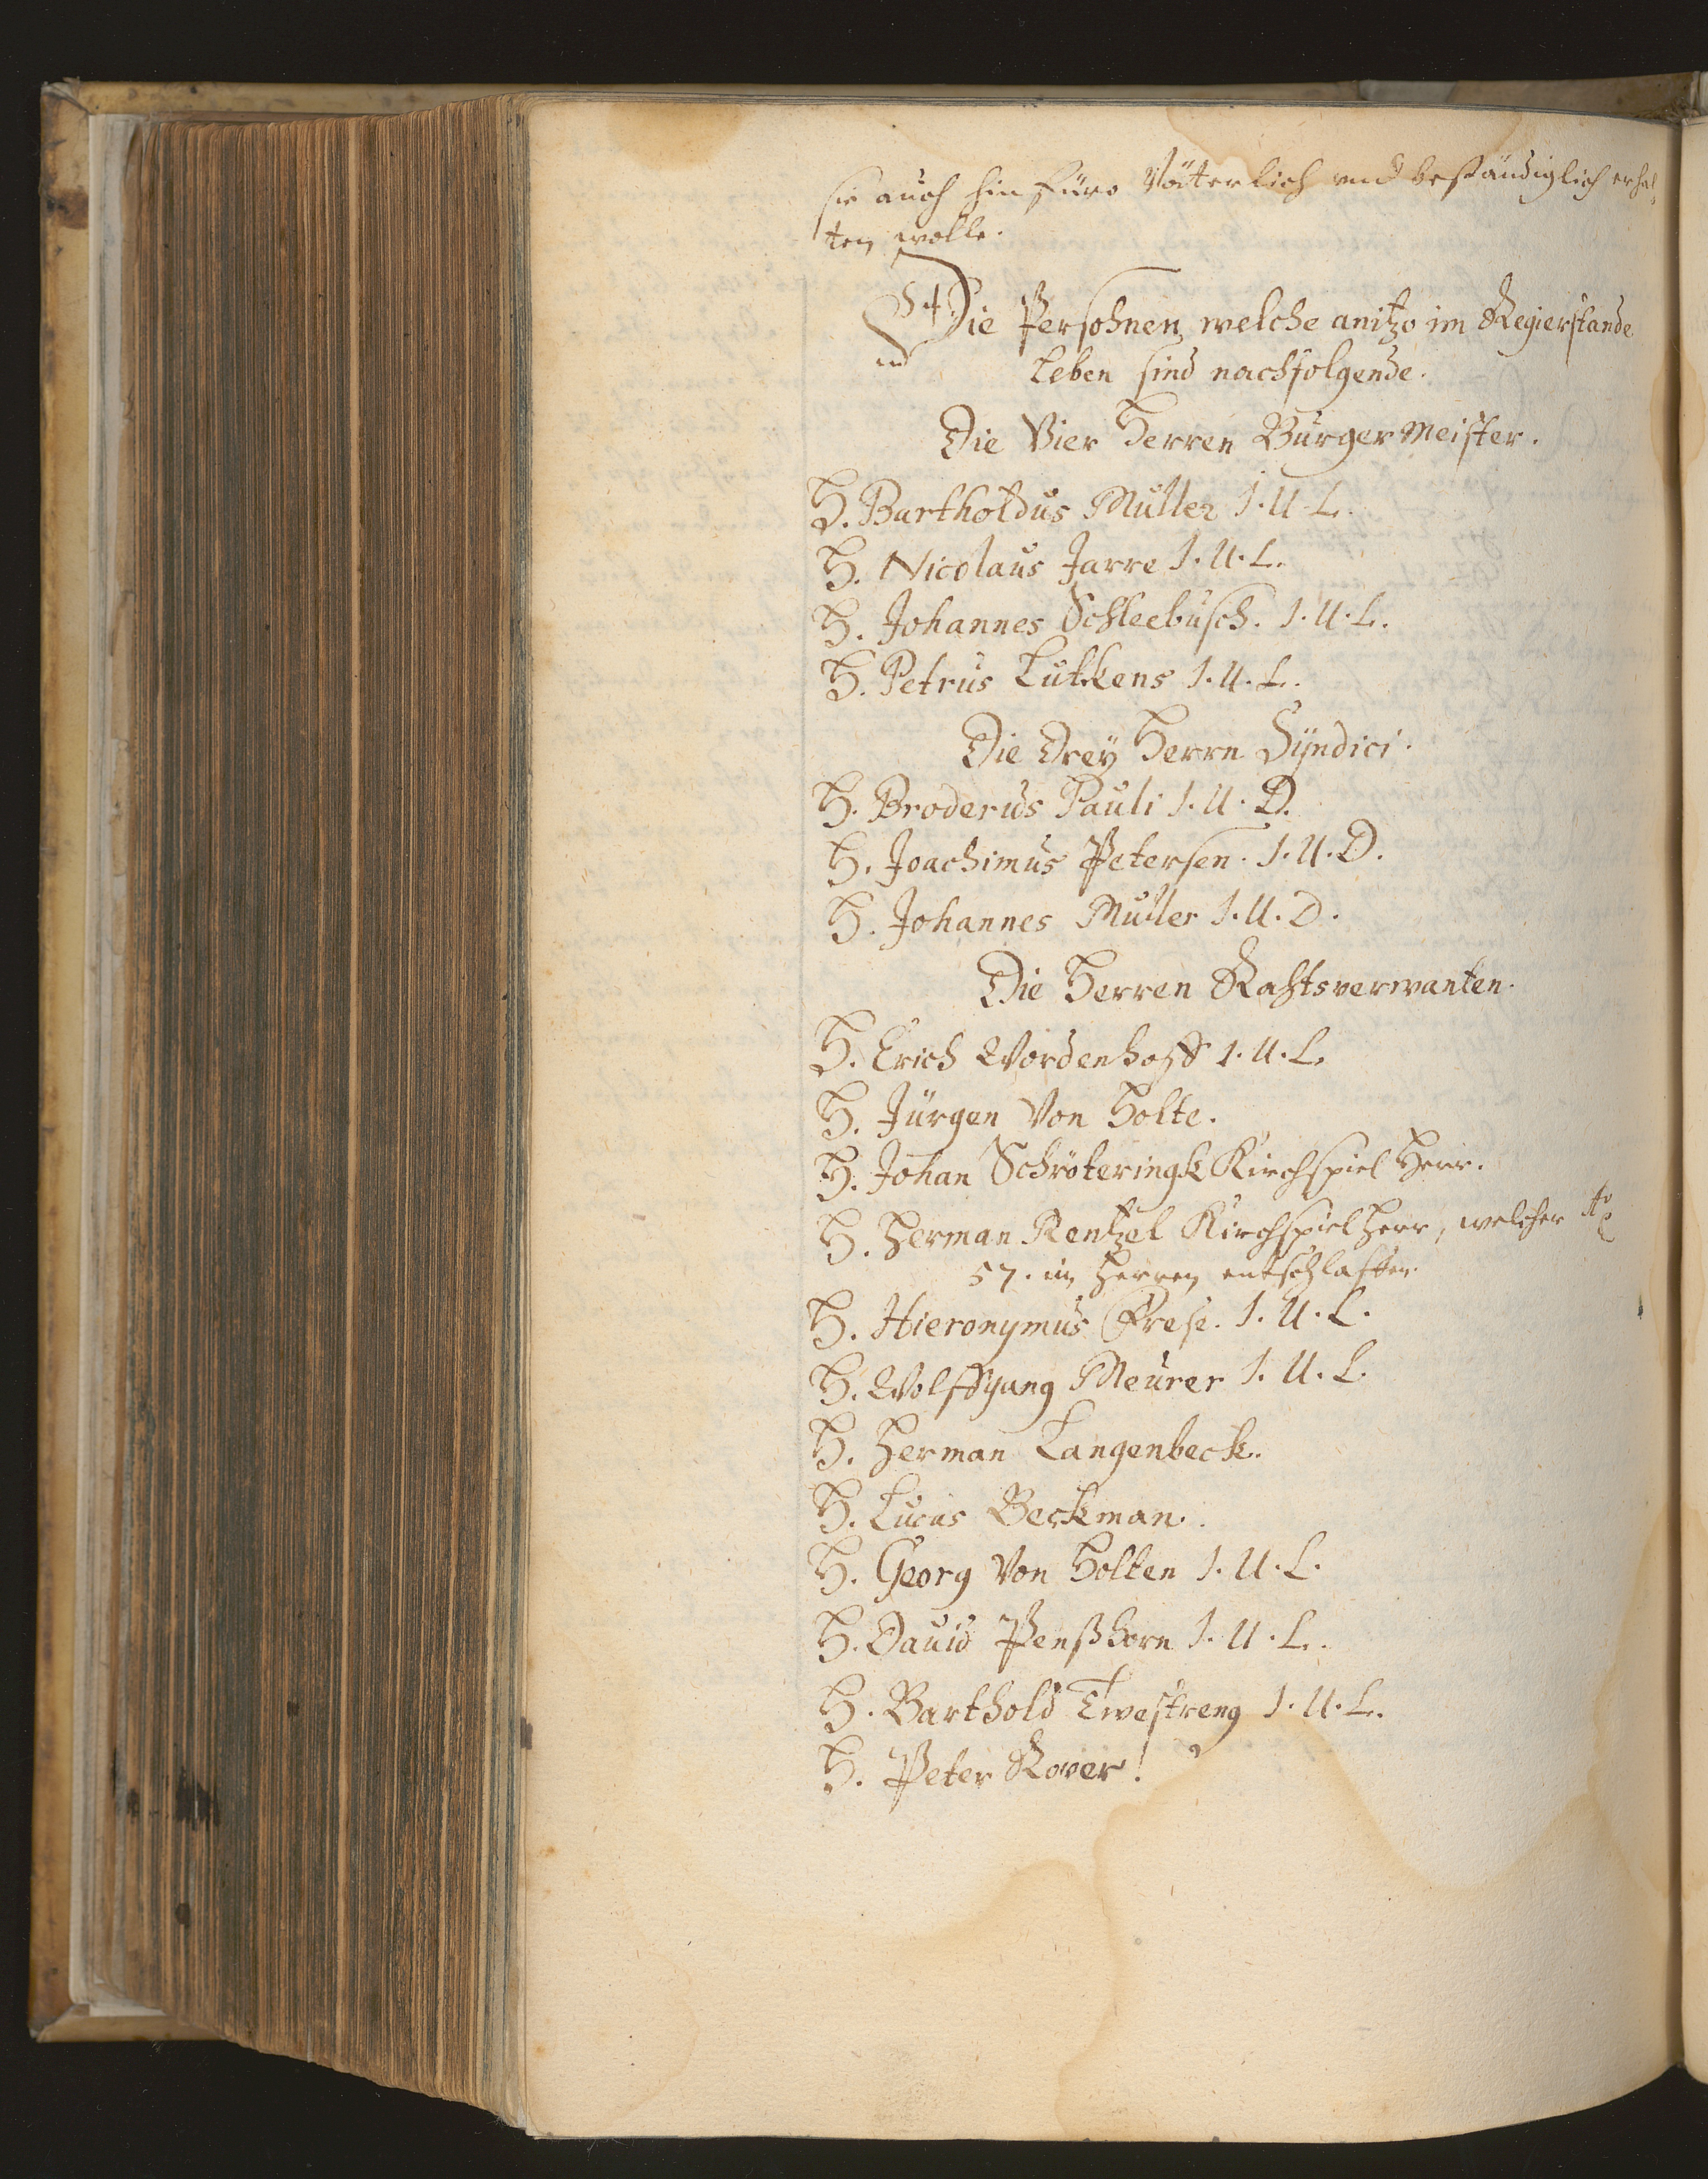 sie auch hinfüro Väterlich und beständiglich erhal,
ten wolle.
Die Persohnen welche anitzo im Regierstande
leben sind nachfolgende.
Die Vier Herren Bürger Meister.
H. Bartholdus Müller I. U. L.
H. Nicolaus Jarre I. U. L.
H. Johannes Schleebusch. I. U. L.
H. Petrus Lütkens I. U. L.
Die Dreÿ Herrn Sÿndici.
H. Broderus Pauli I. U. D.
H. Joachimus Petersen. I. U. D.
H. Johannes Müller I. U. D.
Die Herren Rahtsverwanten.
H. Erich Wordenhoff I. U. L.
H. Jürgen Von Holte.
H. Johan Schröteringk Kirchspiel Herr.
H. Herman Rentzel Kirchspiel Herr, welcher Aō
57. im Herren entschlaffen
H. Hieronymus Frese. I. U. L.
H. Wolffgang Meurer I. U. L.
H. Herman Langenbeck.
H. Lucas Beckman.
H. Georg Von Holten I. U. L.
H. Dauid Penßhorn I. U. L.
H. Barthold Twestreng I. U. L.
H. Peter Röver.